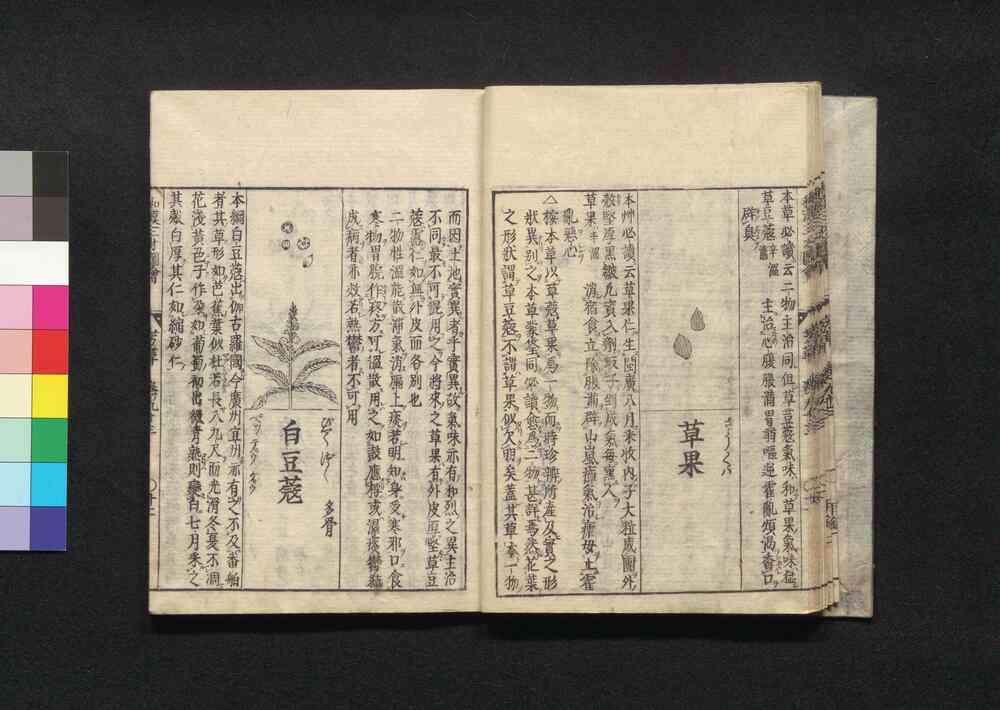 本草必讀云二物主治同但草豆蔲氣味和草果氣味猛
草豆蔲辛溫
主治心腹脹滿胃弱嘔逆霍亂煩渴香口
辟臭
さうくは
草果
本艸必讀云草果仁生閩廣八月采收內子大粒成團外
殼堅厚黑皺
草果辛溫 消宿食立除脹滿
亂惡心
△按本草以草蔲草果爲一物而時珍辨所産及實之形
狀異別之本草蒙筌同必讀愈爲二物甚詳焉然花葉
之形狀謂草豆蔲不謂草果似欠明矣蓋其草本一物
而因土地實異者乎實異故氣味亦有和烈之異主治
不同最不可混用之今將來之草果有外皮厚堅草豆
蔲惠仁如無外皮而各別也
二物性溫能散滯氣消膈上痰若明知身受寒邪口食
寒物胃脘作疼方可溫散用之如鼓應桴或濕痰鬱結
成病者亦效若熱鬱者不可用
びやくづく
多骨
白豆蔲
本綱白豆蔲出伽古羅國今廣州宜州亦有之不及番舶
者其草形如芭蕉葉似杜若長八九尺而光滑冬夏不凋
花淺黃色子作朶如葡萄初出微青熟則變白七月采之
其殼白厚其仁如縮砂仁